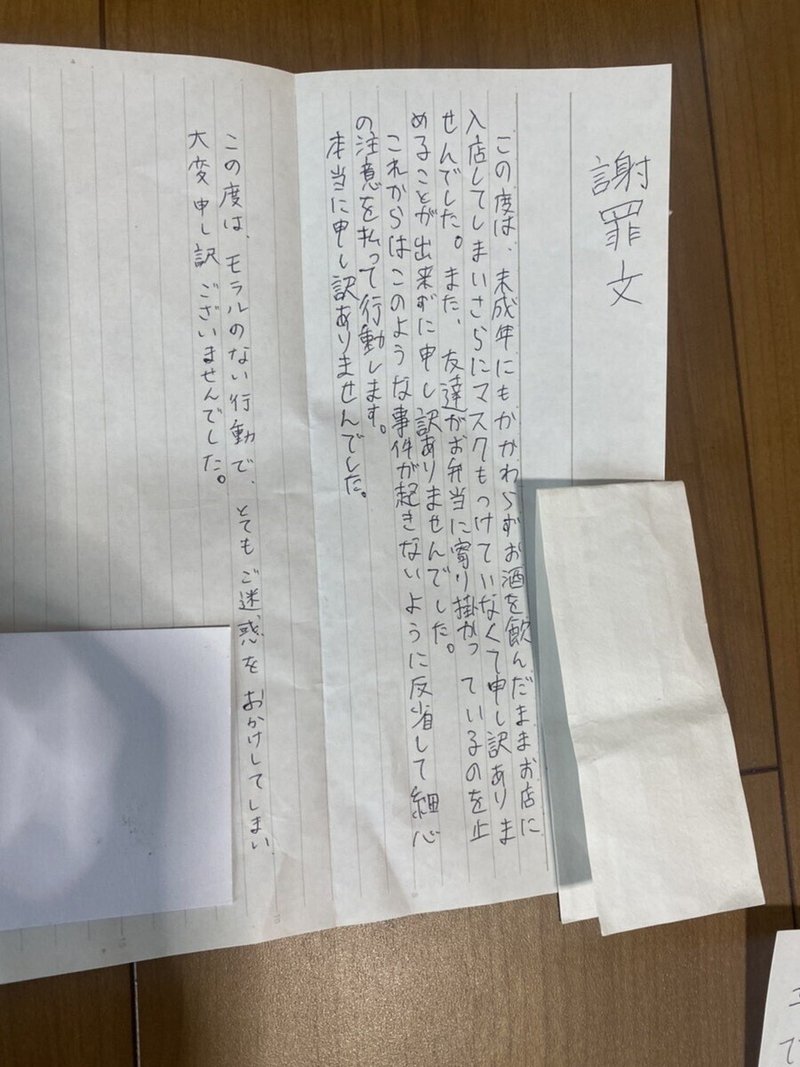 謝罪文
この度は、未成年にもかかわらずお酒を飲んだままお店に
入店してしまいさらにマスクもつけていなくて申し訳ありま
せんでした。また、友達がお弁当に寄り掛かっているのを止
めることが出来ずに申し訳ありませんでした。
これからはこのような事件が起きないように反省して細心
の注意を払って行動します。
本当に申し訳ありませんでした。
この度は、モラルのない行動で、とてもご迷惑をおかけしてしまい
大変申し訳ございませんでした。